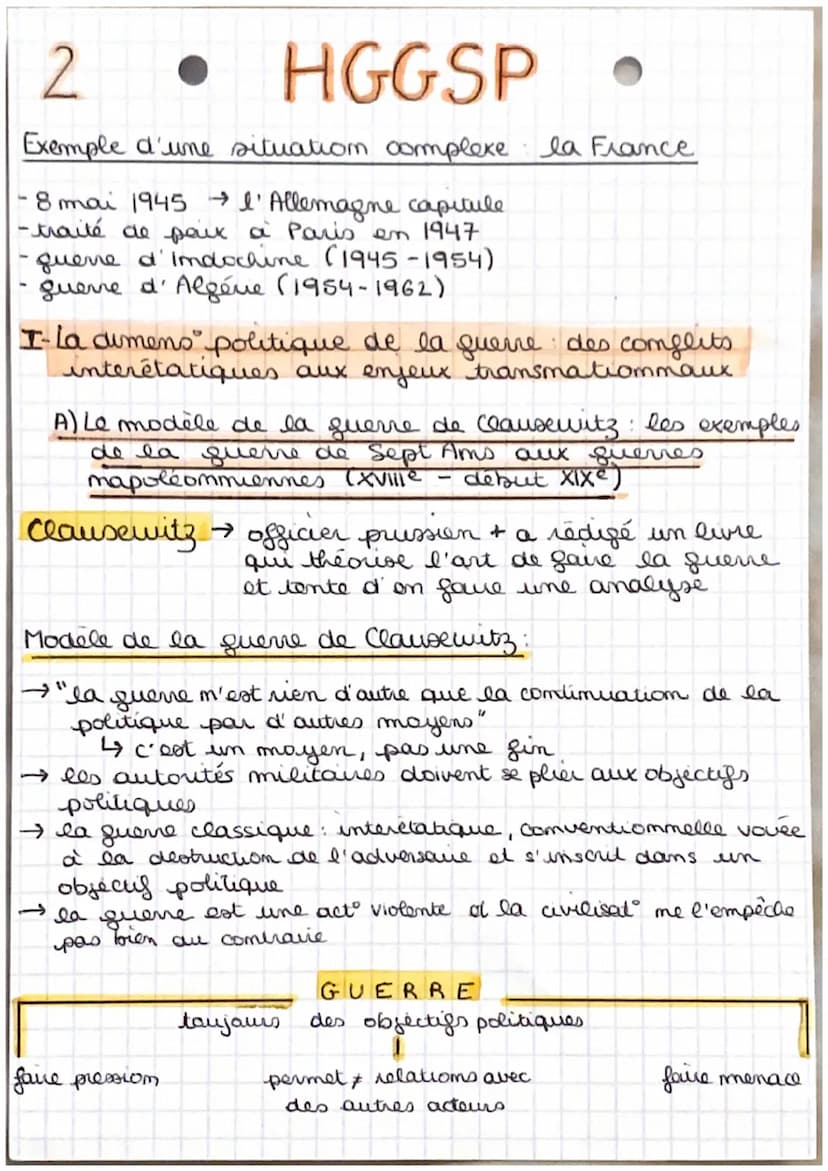 2 HGGSP
Exemple d'une situation complexe : la France
- 8 mai 1945 → l'Allemagne capitule
- traité de paix à Paris en 1947
- guerre d'Indochine (1945-1954)
- guerre d'Algérie (1954-1962)
I- La dimens° politique de la guerre : des conflits
interétatiques aux enjeux transnationnaux
A) Le modèle de la guerre de Clausewitz : les exemples
de la guerre de Sept Ans aux guerres
napoléonniennes (XVIIIe - début XIXe)
Clausewitz → officier prussien + a rédigé un livre
qui théorise l'art de faire la guerre
et tente d'en faire une analyse
Modèle de la guerre de Clausewitz :
→ "la guerre n'est rien d'autre que la continuation de la
politique par d'autres moyens"
↳ c'est un moyen, pas une fin
→ les autorités militaires doivent se plier aux objéctifs
politiques
→ la guerre classique : interétatique, conventionnelle vouée
à la destruction de l'adversaire et s'inscrit dans un
objéctif politique
→ la guerre est une act° violente et la civilisat° ne l'empêche
pas bien au contraire
GUERRE
toujours des objéctifs politiques
faire pression permet ≠ relations avec faire menace
des autres acteurs